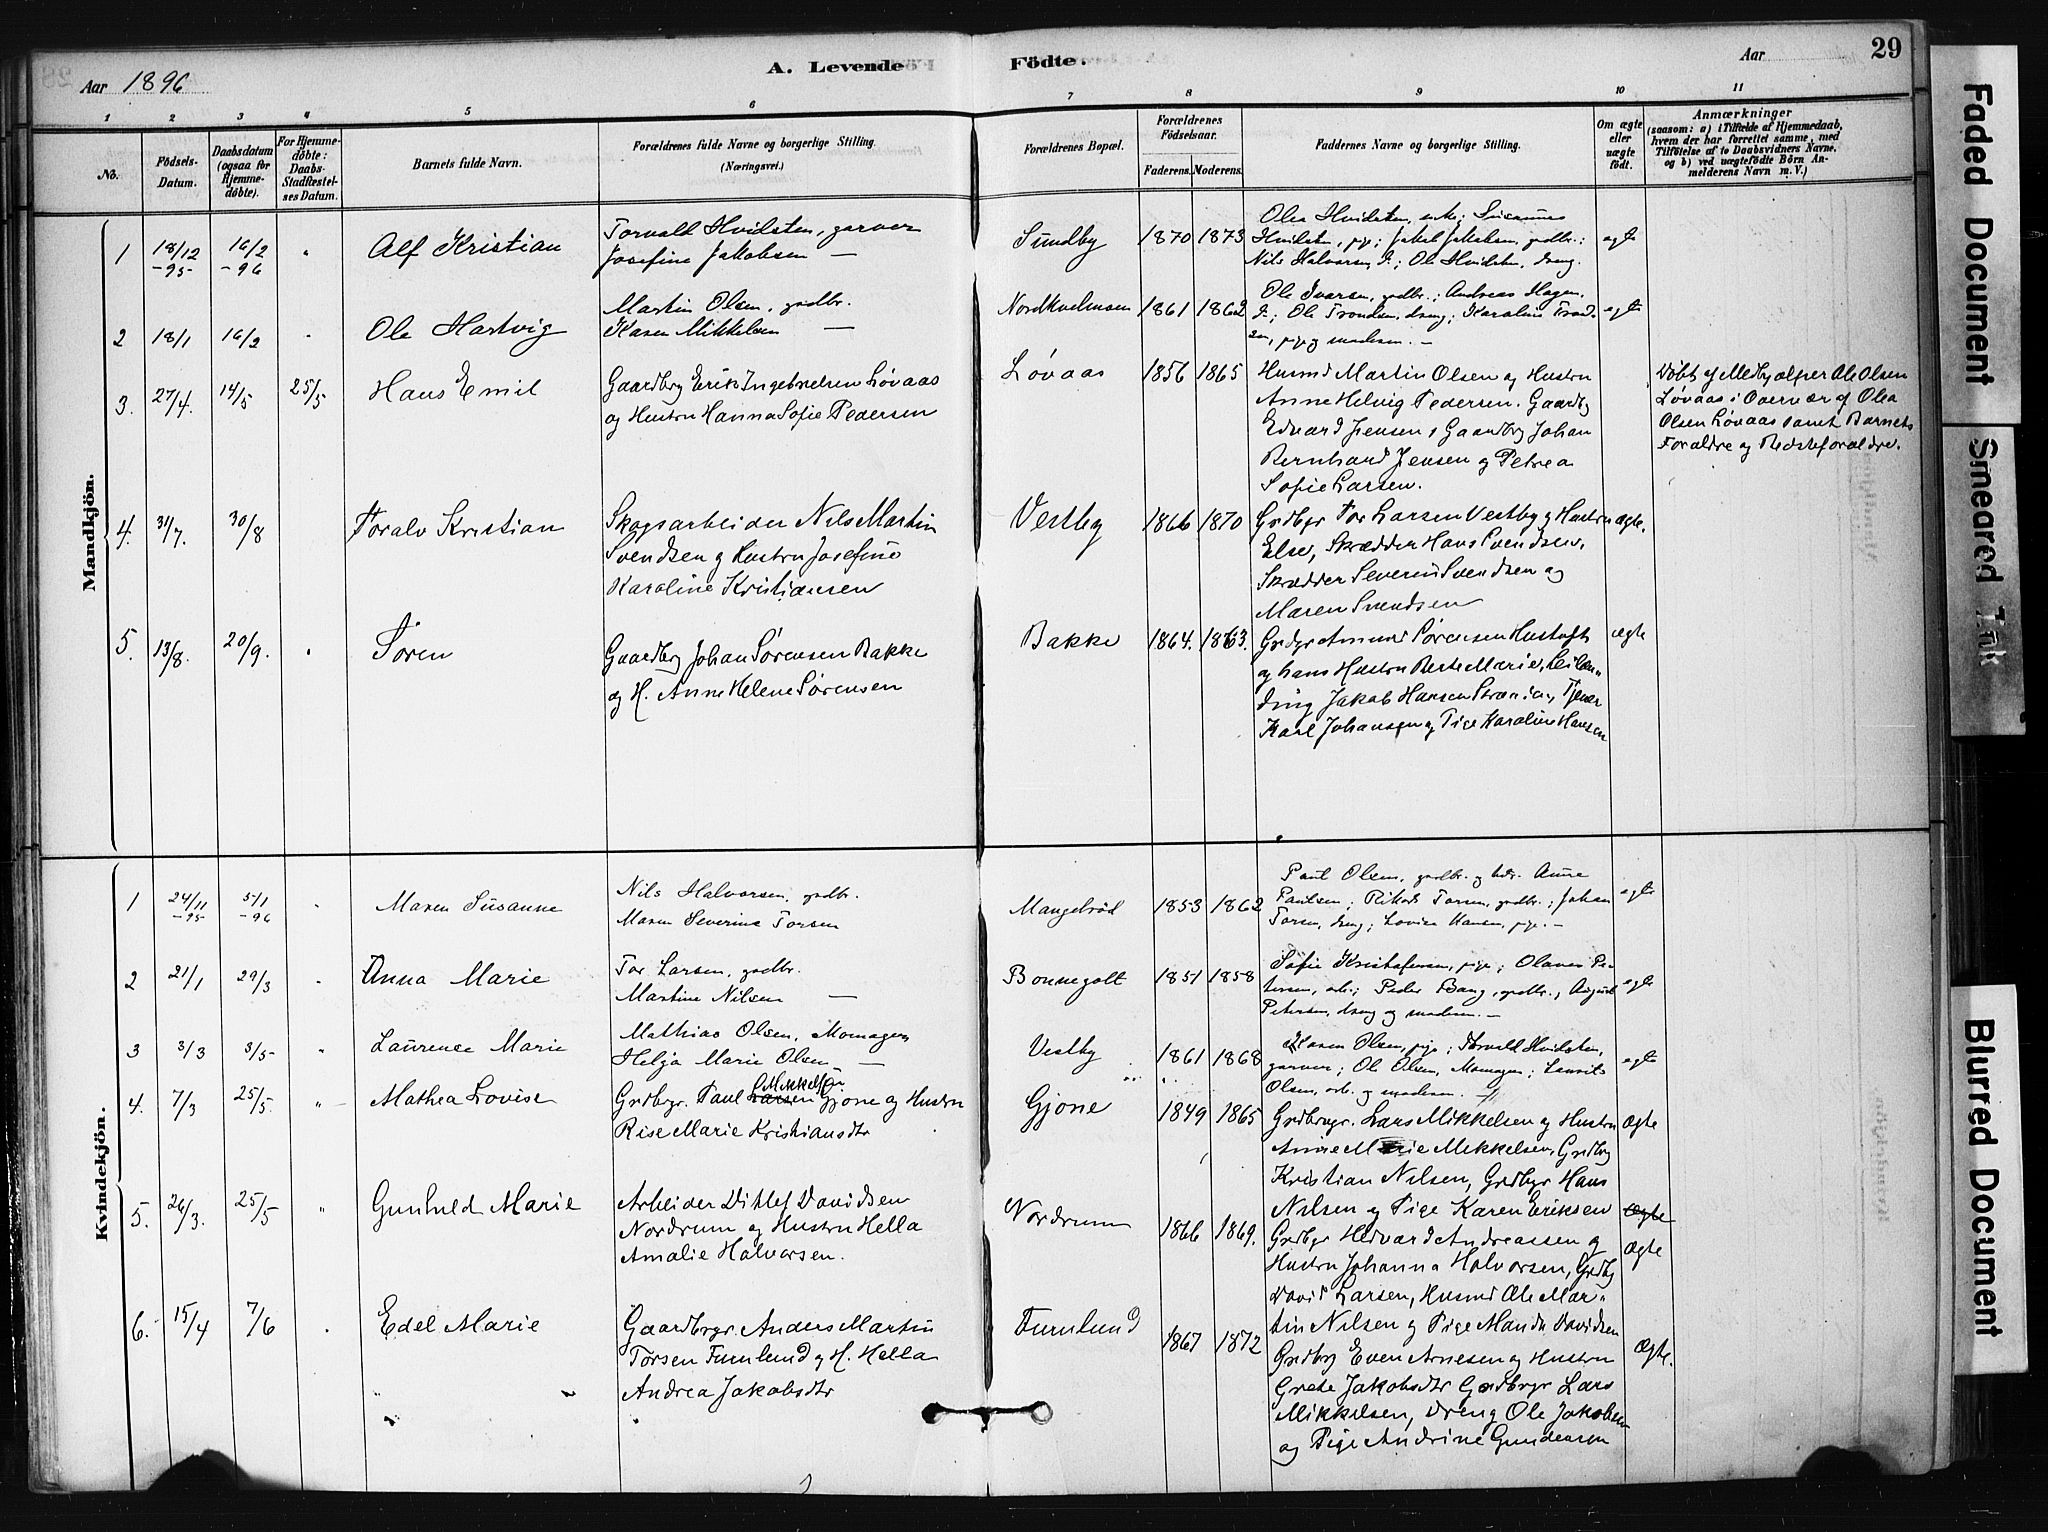 Aar 1896
A. Levende Födte.
Aar
29
1 2 3 4 5 6 7 8 9 10 11
No.
Födsels-Datum.
Daabsdatum (ogsaa for Hjemmedøbte).
For Hjemmedøbte: Daabs-Stadfæstelses Datum.
Barnets fulde Navn.
Forældrenes fulde Navne og borgerlige Stilling.
(Næringsvei.)
Forældrenes Bopæl.
Forældrenes Födselsaar.
Faderens. Moderens.
Faddernes Navne og borgerlige Stilling.
Om ægte eller uægte født.
Anmærkninger
(saasom: a) i Tilfælde af Hjemmedaab,
hvem der har forrettet samme, med
Tilføielse af to Daabsvidners Navne,
og b) ved uægtefødte Børn Anmelderens Navn m. V.)
Mandkjön.
1 18/12 -95- 16/2 -96 " Alf Kristian
Torvald Hvidsten, garver
Josefine Jakobsen —
Sundby 1870 1873
Olea Hvidsten, enke; Susanne
Hvidsten, pige; Jakob Jakobsen, gaardbr.;
Nils Halvorsen, d.; Ole Hvidsten, dreng.
egte
2 18/1 16/2 " Ole Hartvig
Martin Olsen, gaardbr.
Karen Mikkelsen —
1861 1862
Ole Ivarsen, gaardbr.; Andreas Hagen,
d.; Ole Tronsen, dreng; Karoline
pige og moderen. —
egte
3. 27/4. 14/5 25/5 Hans Emil
Gaardbrg Erik Ingebretsen Løvaas
og Hustru Hanna Sofie Pedersen
Løvaas 1856 1865
Husmd Martin Olsen og Hustru
Anne Helvig Pedersen. Gaardbg
Edvard Jensen, Gaardbg Johan
Bernhard Jensen og Petrea
Sofie Larsen.
Døbt af Medhjælper Ole Olsen
Løvaas i Overvær af Olea
Olsen Løvaas samt Barnets
Forældre og Bedsteforældre.
4. 31/7. 30/8 Toralv Kristian
Skogsarbeider Nils Martin
Svendsen og Hustru Josefine
Karoline Kristiansen
Vestby 1866 1870
Grdbgr Tor Larsen Vestby og Hustru
Else, Skrædder Hans Svendsen,
Skrædder Severin Svendsen og
Maren Svendsen
ægte.
5. 13/8. 20/9. " Søren
Gaardbrg Johan Sørensen Bakke
og H. Anne Helene Sørensen
Bakke 1864. 1863.
Grdbgr Sørensen
og hans Hustru Berte Marie, Leilæn-
ding Jakob Hansen Tjener
Karl Johansen og Pige Karoline Hansen
ægte
Kvindekjön.
1 24/11 -95- 5/1 -96 " Maren Susanne
Nils Halvorsen, gaardbr.
Maren Severine Torsen
Mangelsröd 1853 1862
Paul Olsen, gaardbr. og Anne
Paulsen; Rikard Torsen, gaardbr.; Johan
Torsen, dreng; Lovise Hansen, pige. —
egte
2 21/1 29/3 " Anna Marie
Tor Larsen, gaardbr.
Martine Nilsen —
Bonnegolt 1851 1858
Sofie Kristofersen, pige; Olaves Pe-
tersen, arb.; Peder Bang, gaardbr., August
Petersen, dreng og moderen. —
egte
3 3/3 3/5- " Laurense Marie
Mathias Olsen, Momagen
Helja Marie Olsen —
Vestby 1861 1868
Karen Olsen, pige; Torvald Hvidsten,
garver; Ole Olsen, Momagen; Laurits
Olsen, arb. og moderen. —
egte
4. 7/3 25/5. " Mathea Lovise
Grdbrgr. Paul Larsen Mikkelsen Gjone og Hustru
Rise Marie Kristiansdtr
Gjone 1849 1865
Grdbrugr. Lars Mikkelsen og Hustru
Anne Marie Mikkelsen, Grdbg
Kristian Nilsen, Grdbgr Hans
Nilsen og Pige Karen Eriksen
Ægte
5. 26/3. 25/5 " Gunhild Marie
Arbeider Ditlef Davidsen
Nordrum og Hustru Hella
Amalie Halvorsen.
Nordrum 1866 1869.
Grdbgr Hedvard Andreassen og
Hustru Johanna Halvorsen, Grdbg
David Larsen, Husmd Ole Mar-
tin Nilsen og Pige Mandu Davidsen
Ægte
Ægte
6. 15/4 7/6 " Edel Marie
Gaardbrgr. Anders Martin
Torsen Furulund og H. Hella
Andrea Jakobsdtr
Furulund 1867 1872
Grdbg Even Arnesen og Hustru
Grete Jakobsdtr Grdbrgr Lars
Mikkelsen, Dreng Ole Jakobsen
og Pige Andrine Gundersen
Ægte.
Faded Document
Smeared Ink
Blurred Document